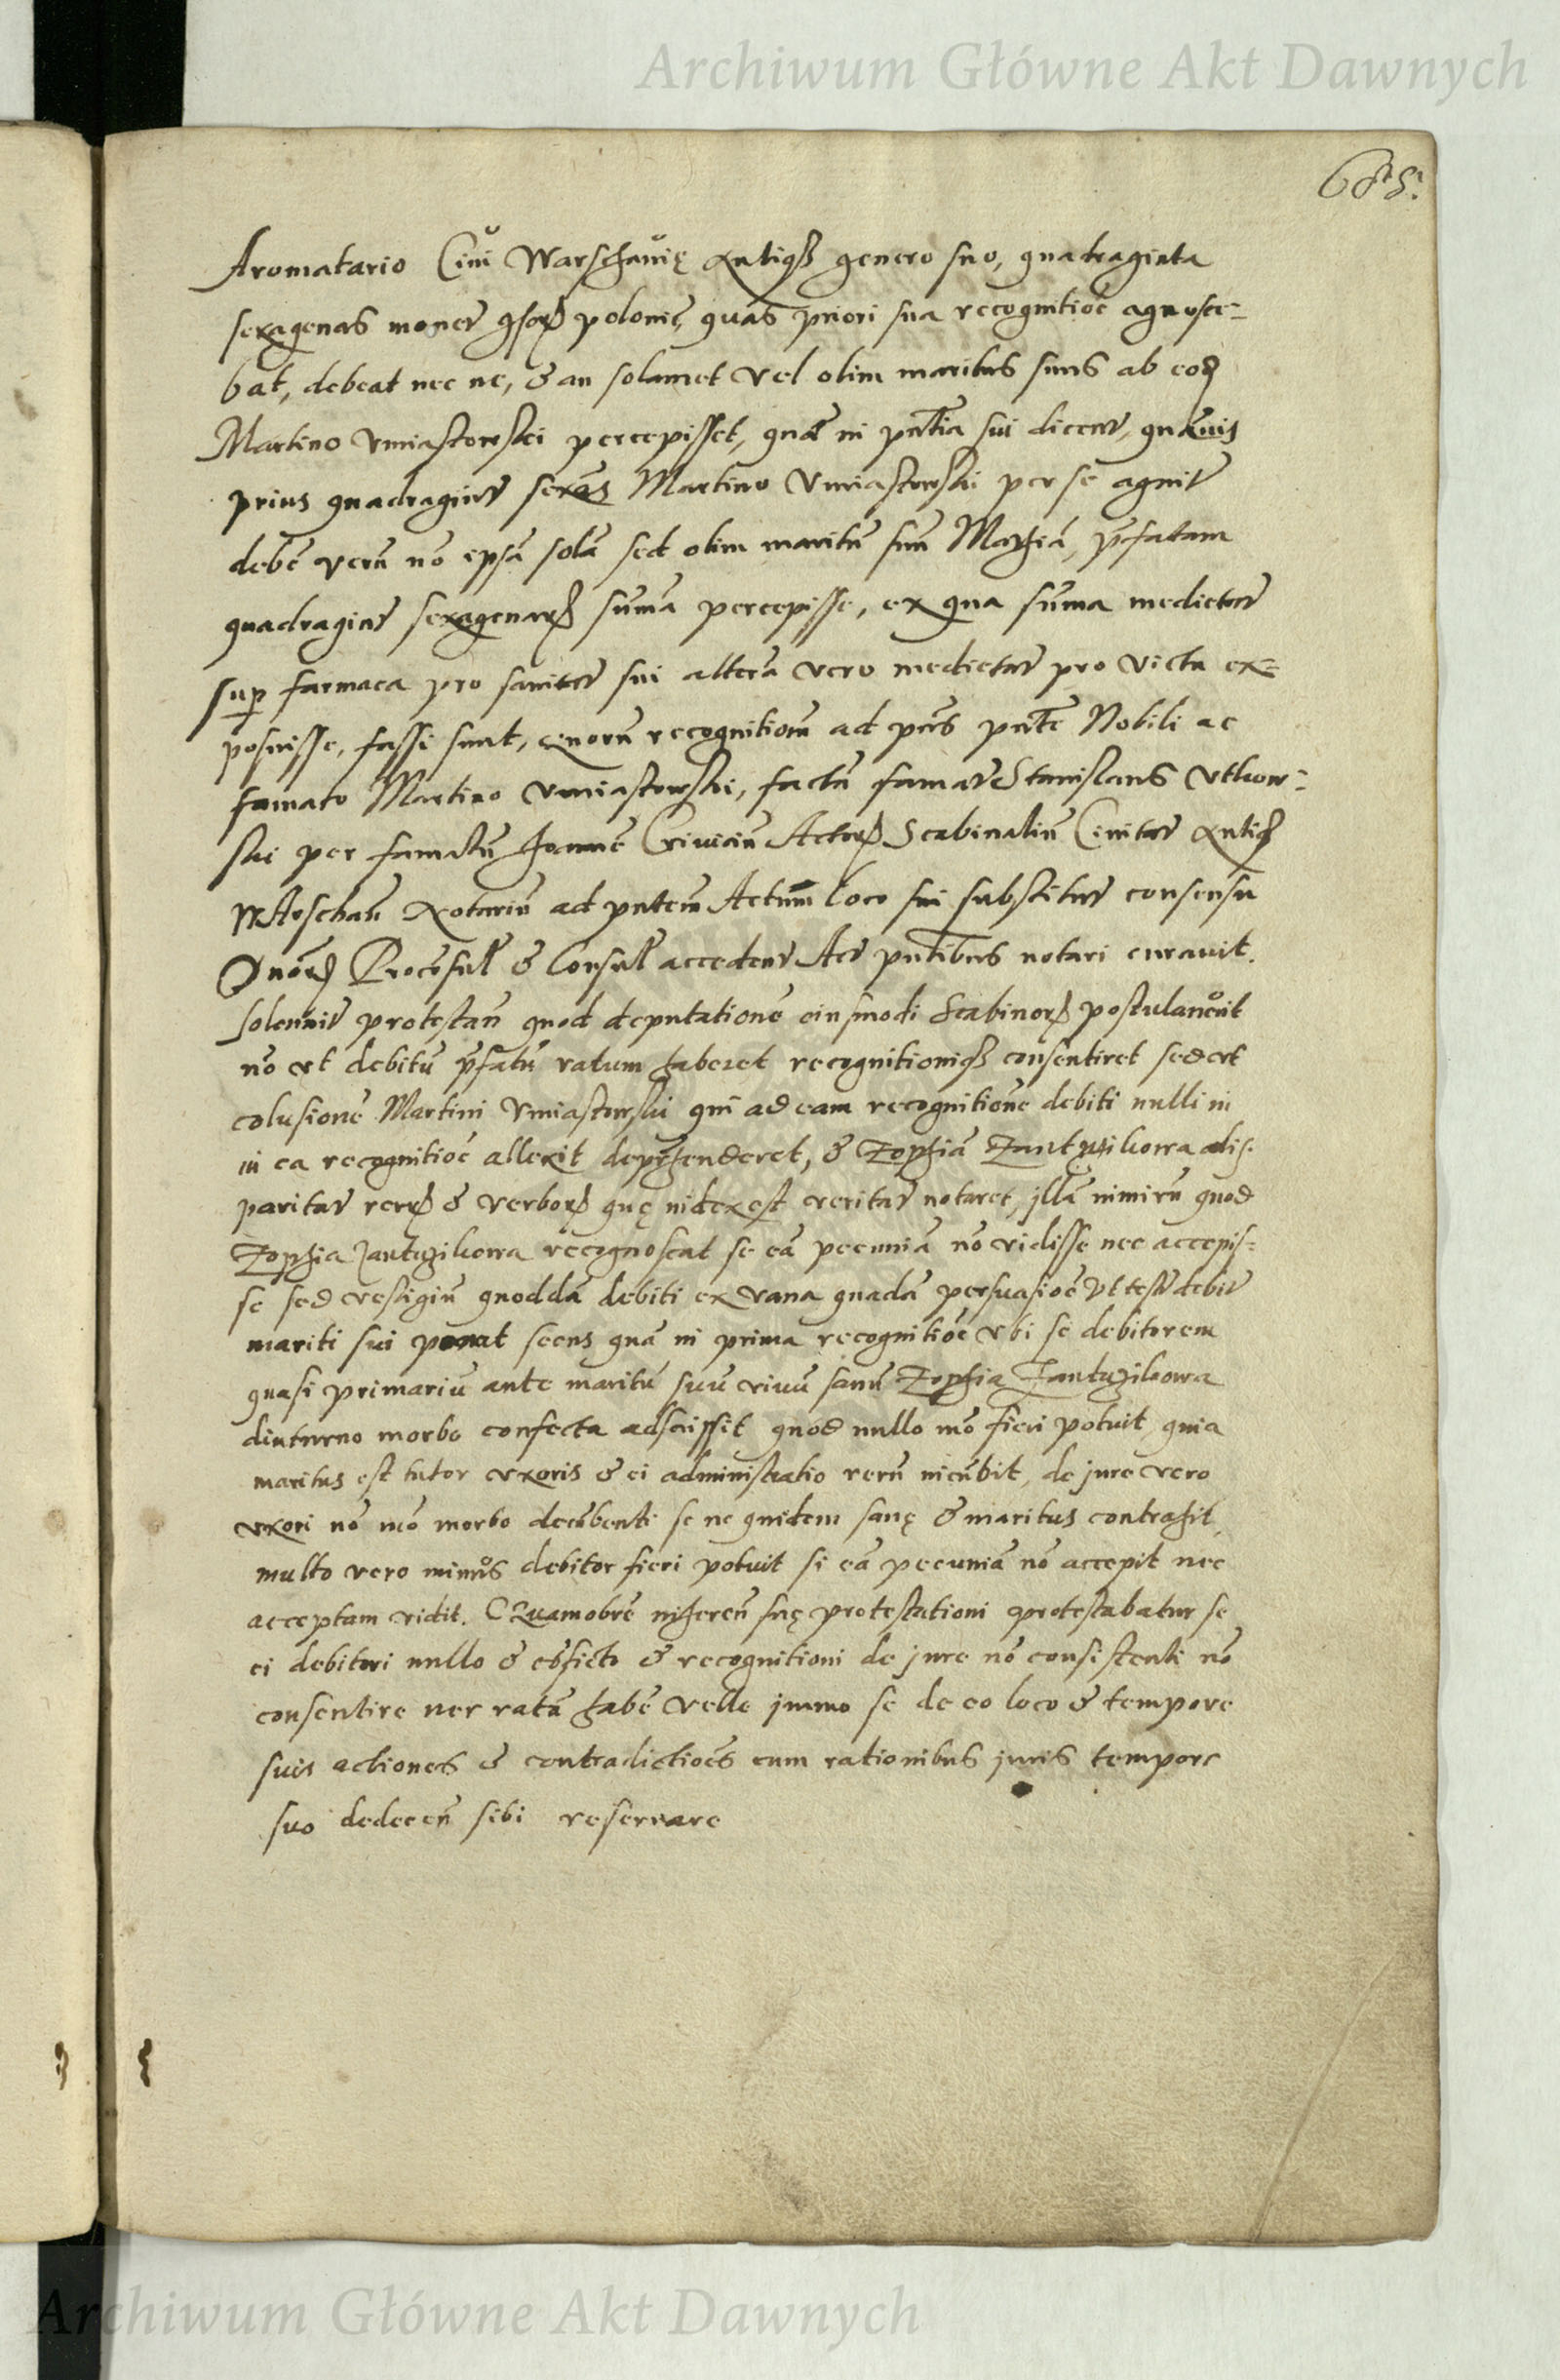 Archiwum Główne Akt Dawnych
685.
Aromatario Ciui Warschauię Antiqę genero suo, quadraginta
sexagenas monet polonię, quas priori sua recognitiōe agnosce-
bat, debeat nec ne, & an solamet vel olim maritus suus ab eod
Martino Vmiastowski percepisset, quā in pntia sui dicent, quāuis
prius quadragint sexas Martino Vmiastowski per se agnit
debē verū nō ipsā solā sed olim maritū suū Mathiā, pfatam
quadragint sexagenar sūmā percepisse, ex qua sūma medietat
sup farmaca pro sanitat sui alterā vero medietat pro victu ex-
posuisse, fassi sunt, quorū recognitionē ad pns pnte Nobili ac
famato Martino Vmiastowski, factā famat Stanislaus Vtkow-
ski per famatū Joannē Criuiciū Actor Scabinaliū Ciuitat Antiq
Warschau Notariū ad pntem Actum loco sui substitut consensu
Dnor Procōsul & Consul accedent Act pntibus notari curauit.
solennit protestan quod deputationē eiusmodi Scabinor postulauerit
nō vt debitū pfatū ratum haberet recognitioniq consentiret sed vt
colusionē Martini Vmiastowski qui ad eam recognitionē debiti nulli in
in ea recognitiōe allexit deprehenderet, & Zophiā Jantzikowa dis-
paritat rerū & verbor quę index est veritat notaret, illā nimirū quod
Zophia Jantzikowa recognoscat se eā pecuniā nō vidisse nec accepis-
se sed vestigiū quoddā debiti ex vana quadā persuasiōe vt test debit
mariti sui ponat secus quā in prima recognitiōe vbi se debitorem
quasi primariū ante maritū suū viuū sanū Zophia Jantzikowa
diuturno morbo confecta adscripsit quod nullo mō fieri potuit quia
maritus est tutor vxoris & ei administratio rerū incūbit, de jure vero
vxori nō mō morbo decūbenti se ne quidem sanę & maritus contrahit
multo vero minus debitor fieri potuit si eā pecuniā nō accepit nec
acceptam vidit. Quamobrē inheren suę protestationi protestabatur se
ei debitori nullo & & recognitioni de jure nō consistenti nō
consentire nec ratā habē velle immo se de eo loco & tempore
suis actiones & contradictiōes cum rationibus juris tempore
suo dedecen sibi reseruare
Archiwum Główne Akt Dawnych